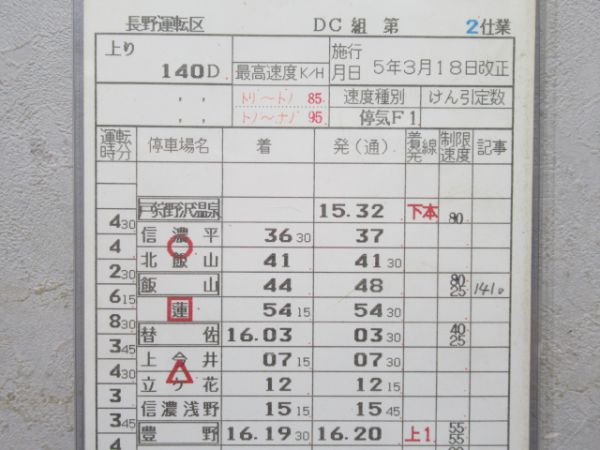 長野運転区 DC組 第 2仕業
上り 施行
140D 最高速度K/H 月日 5年3月18日改正
〃 〃 トリ〜トノ 85 速度種別 けん引定数
〃 〃 トノ〜ナノ 95 停気F1
運転時分 停車場名 着 発(通) 着発線 制限速度 記事
戸狩野沢温泉 15.32 下本 80
4 30
信濃平 36 30 37
4
北飯山 41 41 30
2 30
飯山 44 48 80 25 141D
6 15
蓮 54 15 54 30
8 30
替佐 16.03 03 30 40 25
3 45
上今井 07 15 07 30
4 30
立ケ花 12 12 15
3
信濃浅野 15 15 15 45
3 45
豊野 16.19 30 16.20 上1 55 55
4